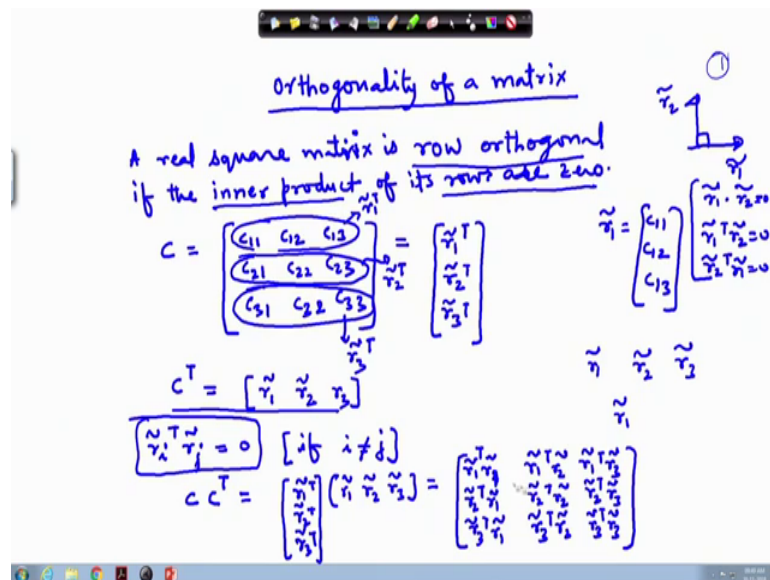 ①
Orthogonality of a matrix
A real square matrix is row orthogonal
if the inner product of its rows are zero.
C = [ c11 c12 c13 ] r̃1ᵀ = [ r̃1ᵀ ]
[ c21 c22 c23 ] r̃2ᵀ [ r̃2ᵀ ]
[ c31 c22 c33 ] r̃3ᵀ [ r̃3ᵀ ]
r̃2
r̃1
r̃1 = [ c11 ]
[ c12 ]
[ c13 ]
r̃1 . r̃2 = 0
r̃1ᵀ r̃2 = 0
r̃2ᵀ r̃1 = 0
r̃1 r̃2 r̃3
r̃1
Cᵀ = [ r̃1 r̃2 r3 ]
r̃iᵀ r̃j = 0 [if i ≠ j]
C Cᵀ = [ r̃1ᵀ ] ( r̃1 r̃2 r̃3 ) = [ r̃1ᵀr̃1 r̃1ᵀr̃2 r̃1ᵀr̃3 ]
[ r̃2ᵀ ] [ r̃2ᵀr̃1 r̃2ᵀr̃2 r̃2ᵀr̃3 ]
[ r̃3ᵀ ] [ r̃3ᵀr̃1 r̃3ᵀr̃2 r̃3ᵀr̃3 ]